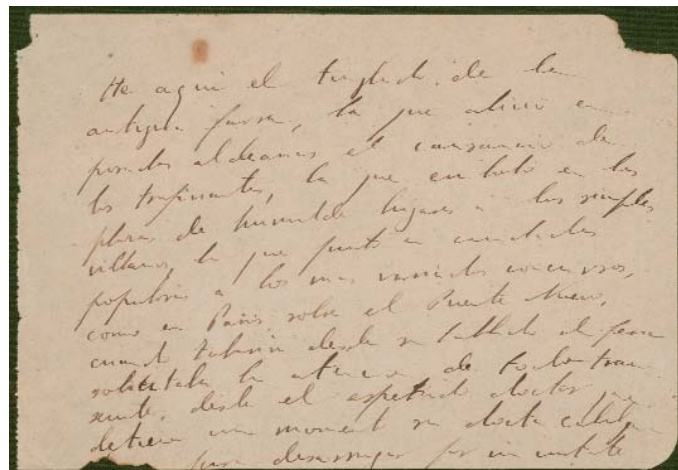 He aquí el tinglado de la
antigua farsa, la que alivió en
posadas aldeanas el cansancio de
los trajinantes, la que embobó en las
plazas de humildes lugares a los simples
villanos, la que juntó en ciudades
populosas a los mas variados concursos,
como en Paris sobre el Puente Nuevo,
cuando Tabarin desde su tablado de feria
solicitaba la atencion de todo tran-
seunte, desde el espetado doctor que
detiene un momento su docta cabalga
para desarrugar por un instante